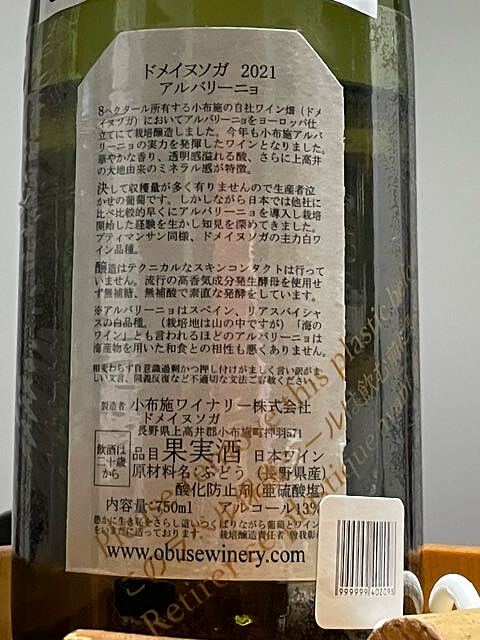 ドメイヌソガ 2021
アルバリーニョ
8ヘクタール所有する小布施の自社ワイン畑（ドメ
イヌソガ）においてアルバリーニョをヨーロッパ仕
立てにて栽培醸造しました。今年も小布施アルバ
リーニョの実力を発揮したワインとなりました。
華やかな香り、透明感溢れる酸、さらに上高井
の大地由来のミネラル感が特徴。
決して収穫量が多く有りませんので生産者泣
かせの葡萄です。しかしながら日本では他社に
比べ比較的早くにアルバリーニョを導入し栽培
開始した経験を生かし知見を深めてきました。
プティマンサン同様、ドメイヌソガの主力白ワ
イン品種。
醸造はテクニカルなスキンコンタクトは行って
いません。流行の高香気成分発生酵母を使用せ
ず無補糖、無補酸で素直な発酵をしています。
※アルバリーニョはスペイン、リアスバイシャ
スの白品種。（栽培地は山の中ですが）「海の
ワイン」とも言われるほどのアルバリーニョは
海産物を用いた和食との相性も悪くありません。
相変わらず自意識過剰かつ押し付けがましく言い訳がま
しい文言、同義反復など不適切な文法ご容赦ください。
製造者 小布施ワイナリー株式会社
ドメイヌソガ
長野県上高井郡小布施町押羽571
飲酒は
二十歳
から
品目 果実酒 日本ワイン
原材料名：ぶどう（長野県産）
酸化防止剤（亜硫酸塩）
内容量：750ml アルコール13%
愚かに生き恥をさらし這いつくばりながら葡萄とワイン
をいまだに造っております。 栽培醸造責任者 曽我彰
www.obusewinery.com
this plastic
Retirer
999999 402095